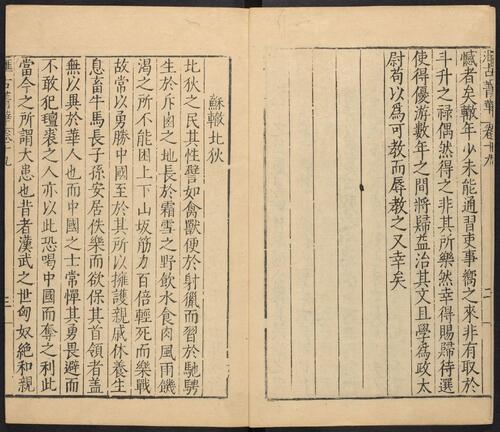 憾者矣轍年少未能通習吏事嚮之來非有取於
斗升之祿偶然得之非其所樂然幸得賜歸待選
使得優游數年之間將歸益治其文且學為政太
尉苟以為可教而辱教之又幸矣
蘇轍北狄
北狄之民其性譬如禽獸便於射獵而習於馳騁
生於斥鹵之地長於霜雪之野飲水食肉風雨饑
渴之所不能困上下山坂筋力百倍輕死而樂戰
故常以勇勝中國至於其所以擁護親戚休養生
息畜牛馬長子孫安居佚樂而欲保其首領者蓋
無以異於華人也而中國之士常憚其勇畏避而
不敢犯氊裘之人亦以此恐喝中國而奪之利此
當今之所謂大患也昔者漢武之世匈奴絶和親